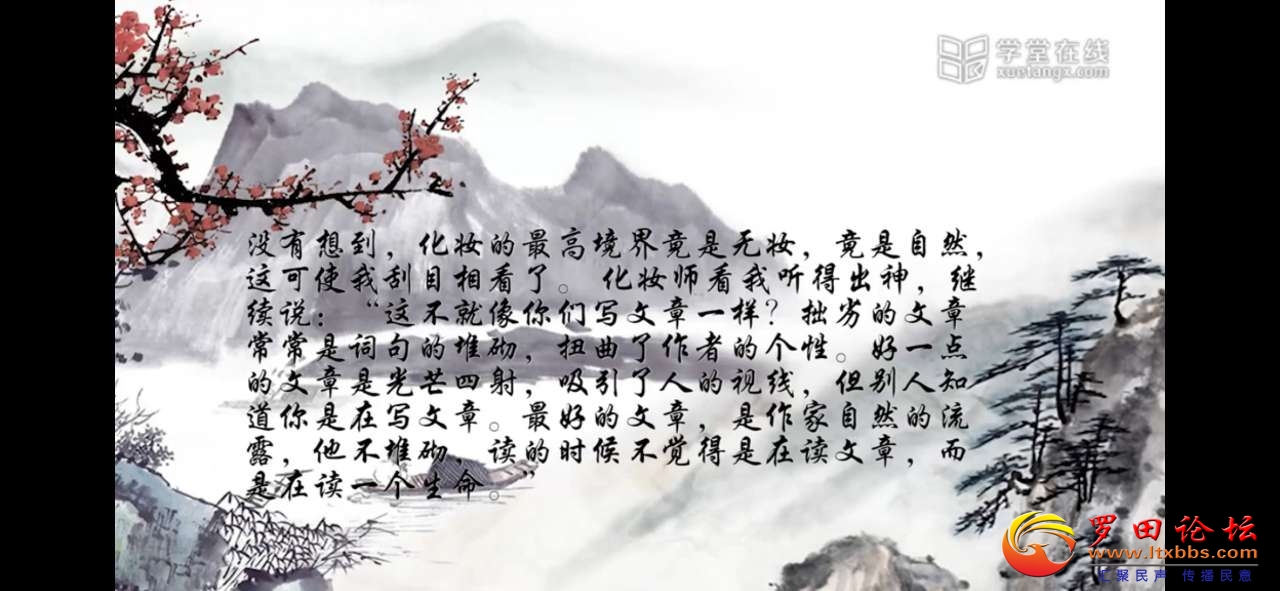 学堂在线
xuetangx.com
没有想到，化妆的最高境界竟是无妆，竟是自然，
这可使我刮目相看了。化妆师看我听得出神，继
续说：“这不就像你们写文章一样？拙劣的文章
常常是词句的堆砌，扭曲了作者的个性。好一点
的文章是光芒四射，吸引了人的视线，但别人知
道你是在写文章。最好的文章，是作家自然的流
露，他不堆砌，读的时候不觉得是在读文章，而
是在读一个生命。”
罗田论坛
www.ltxbbs.com
汇聚民声 传播民意